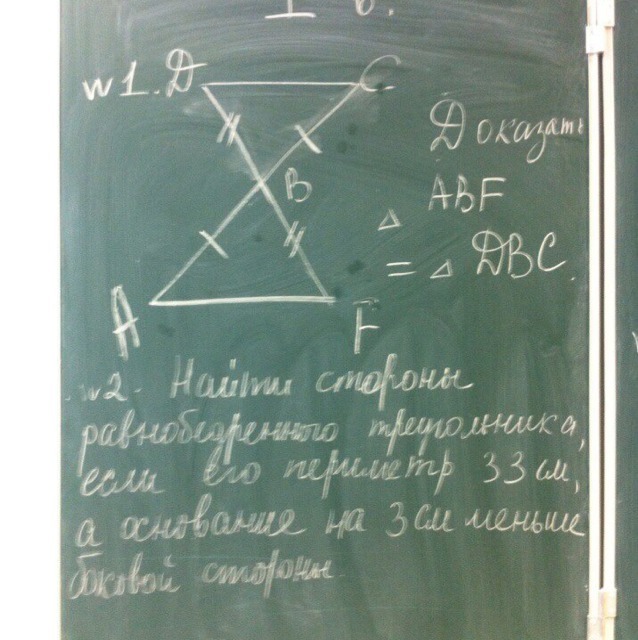 I в.
w1. D C
Доказать
B
ABF
△
= △ DBC.
A F
w2. Найти стороны
равнобедренного треугольника,
если его периметр 33 см,
а основание на 3 см меньше
боковой стороны